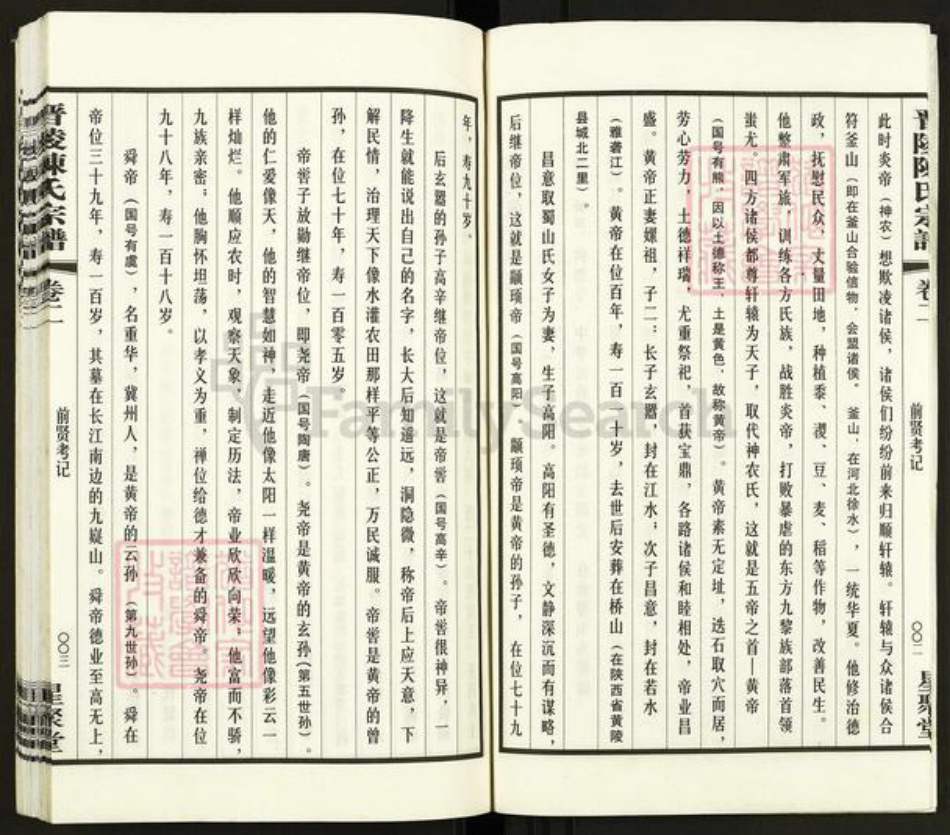 晋陵陈氏宗谱
卷二
前贤考记
〇〇二
星聚堂
此时炎帝（神农）想欺凌诸侯，诸侯们纷纷前来归顺轩辕。轩辕与众诸侯合
符釜山（即在釜山合验信物，会盟诸侯。釜山，在河北徐水），一统华夏。他修治德
政，抚慰民众，丈量田地，种植黍、稷、豆、麦、稻等作物，改善民生。
他整肃军旅，训练各方氏族，战胜炎帝，打败暴虐的东方九黎族部落首领
蚩尤。四方诸侯都尊轩辕为天子，取代神农氏，这就是五帝之首—黄帝
（国号有熊，因以土德称王，土是黄色，故称黄帝）。黄帝素无定址，迭石取穴而居，
劳心劳力，土德祥瑞，尤重祭祀，首获宝鼎，各路诸侯和睦相处，帝业昌
盛。黄帝正妻嫘祖，子二：长子玄嚣，封在江水；次子昌意，封在若水
（雅砻江）。黄帝在位百年，寿一百一十岁，去世后安葬在桥山（在陕西省黄陵
县城北二里）。
昌意取蜀山氏女子为妻，生子高阳。高阳有圣德，文静深沉而有谋略，
后继帝位，这就是颛顼帝（国号高阳 颛顼帝是黄帝的孙子，在位七十九
年，寿九十岁。
后玄嚣的孙子高辛继帝位，这就是帝喾（国号高辛）。帝喾很神异，一
降生就能说出自己的名字，长大后知遥远，洞隐微，称帝后上应天意，下
解民情，治理天下像水灌农田那样平等公正，万民诚服。帝喾是黄帝的曾
孙，在位七十年，寿一百零五岁。
帝喾子放勋继帝位，即尧帝（国号陶唐）。尧帝是黄帝的玄孙（第五世孙）。
他的仁爱像天，他的智慧如神，走近他像太阳一样温暖，远望他像彩云一
样灿烂。他顺应农时，观察天象，制定历法，帝业欣欣向荣；他富而不骄，
九族亲密；他胸怀坦荡，以孝义为重，禅位给德才兼备的舜帝。尧帝在位
九十八年，寿一百十八岁。
舜帝（国号有虞），名重华，冀州人，是黄帝的云孙（第九世孙）。舜在
帝位三十九年，寿一百岁，其墓在长江南边的九嶷山。舜帝德业至高无上，
晋陵陈氏宗谱
卷二
前贤考记
〇〇三
星聚堂
FamilySearch